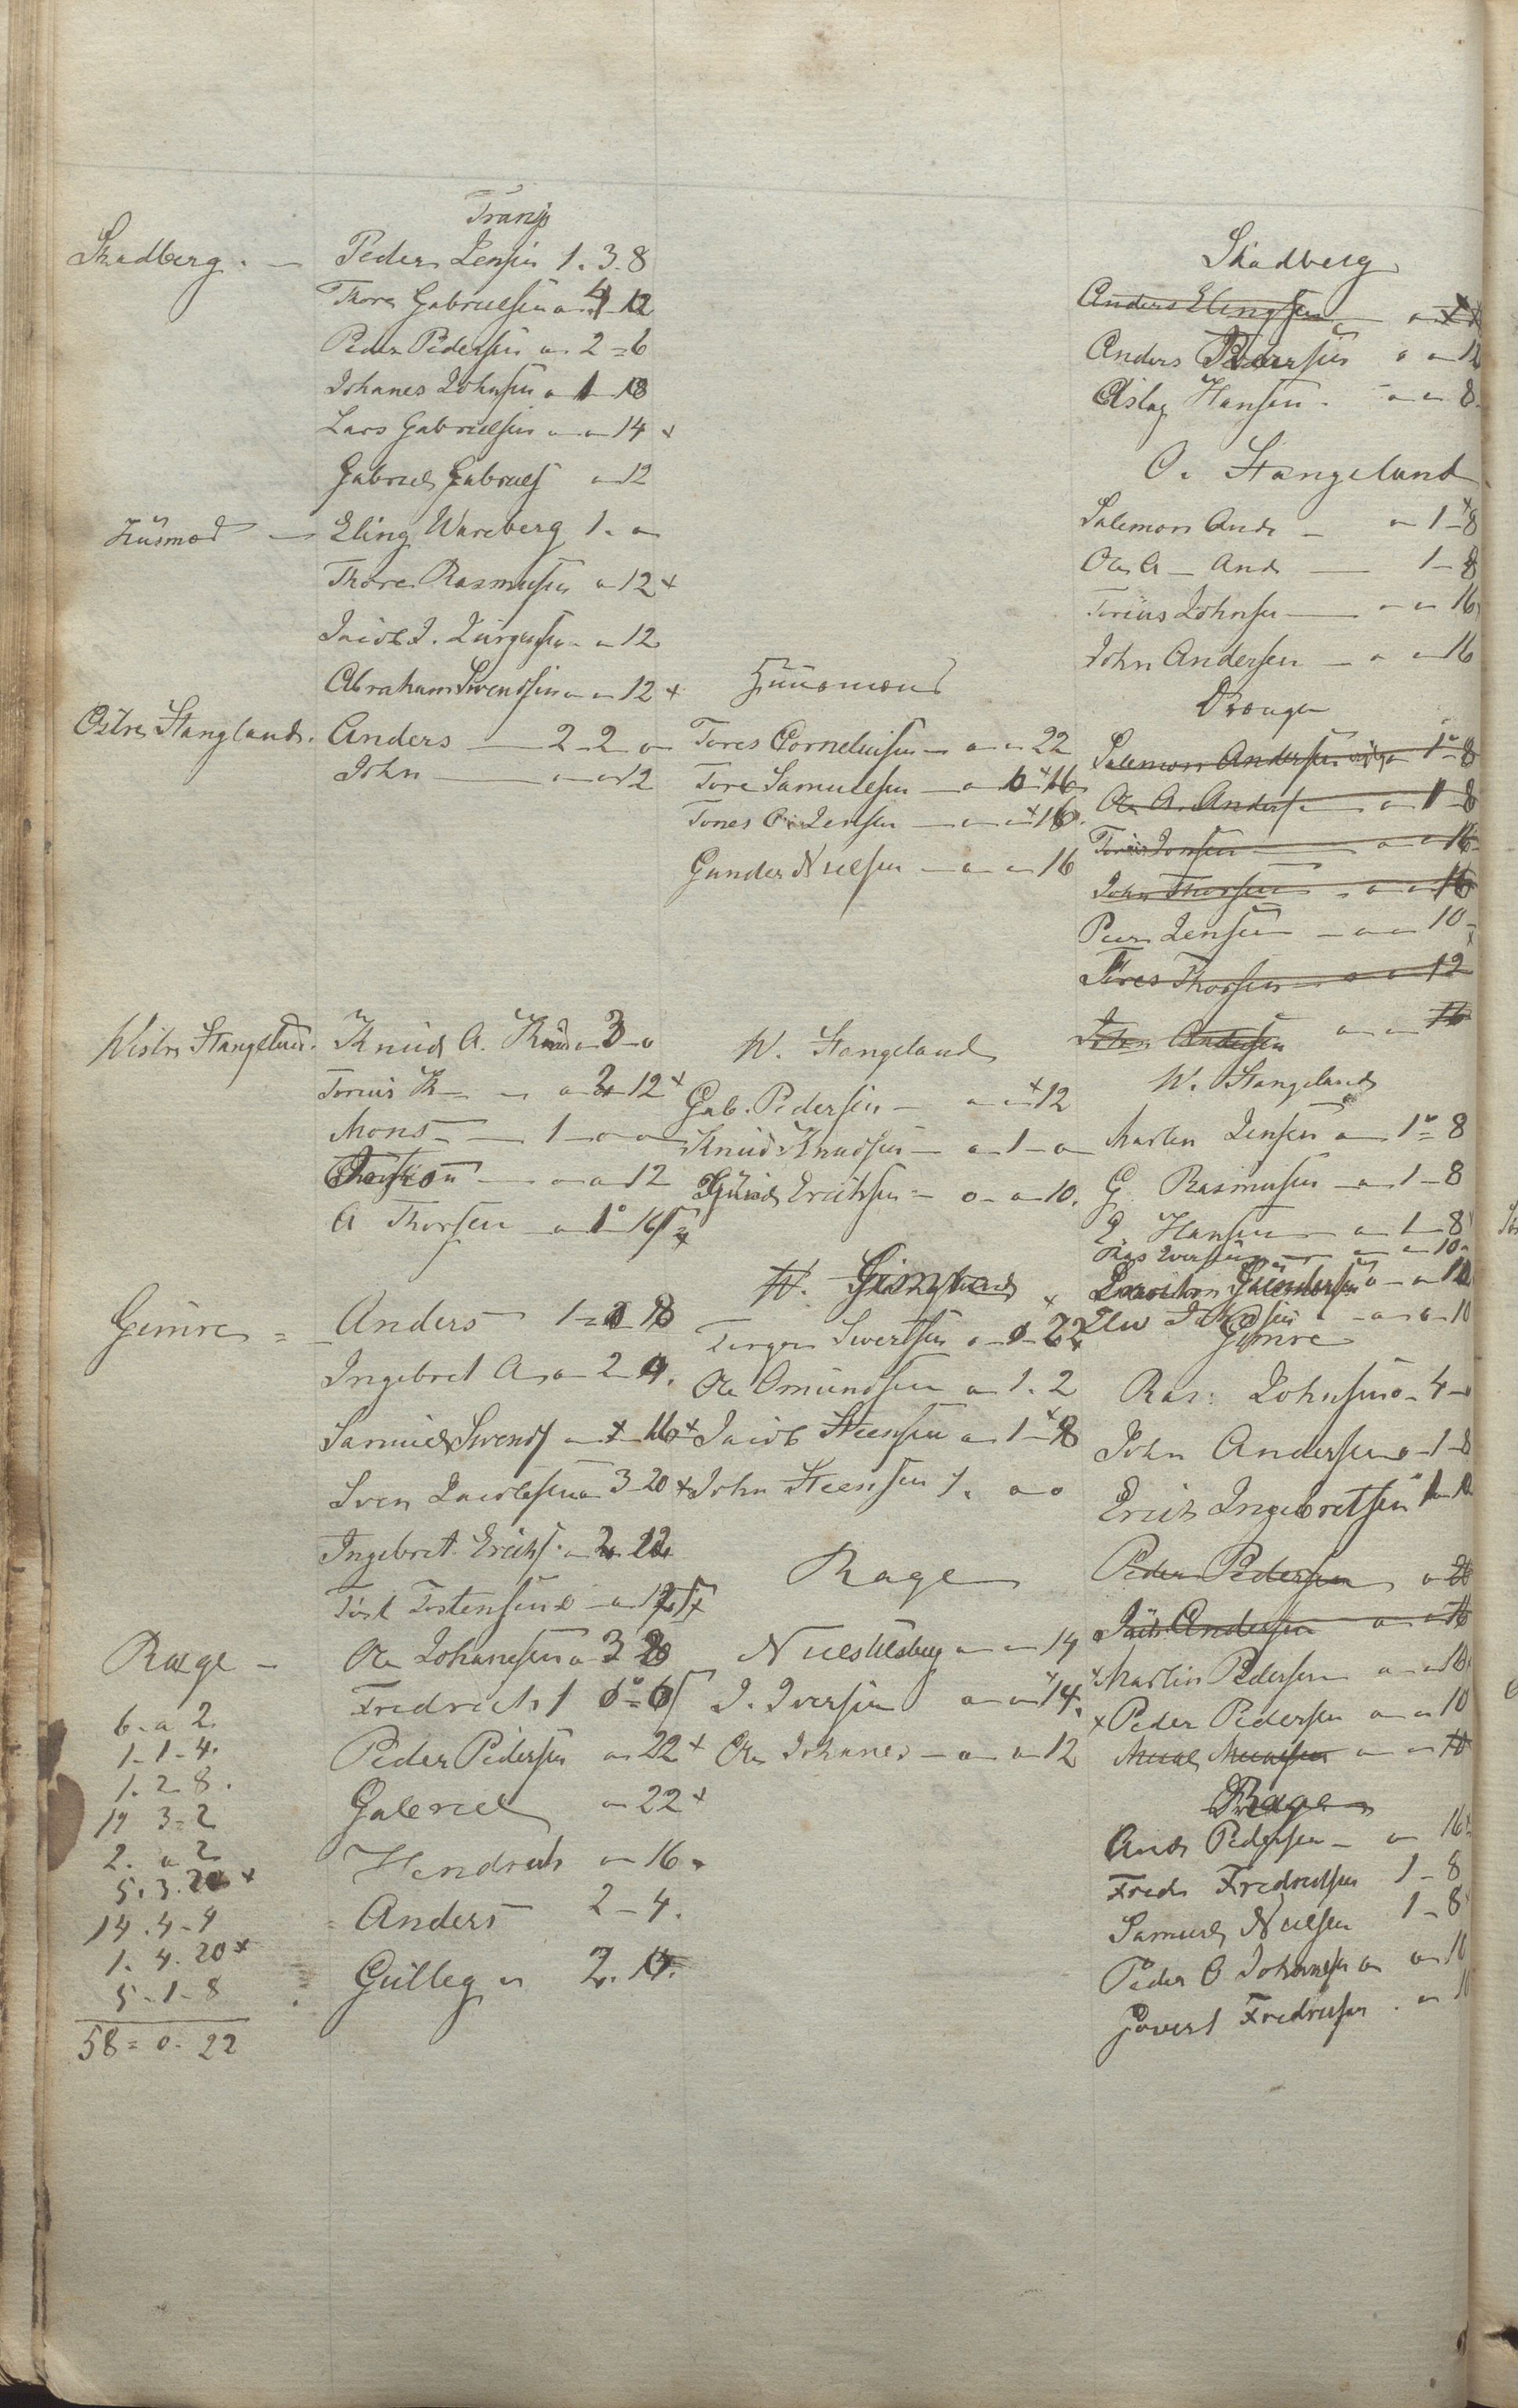 Transp
Skadberg. — Peder Jensen 1. 3. 8
Thore Gabrielsen a 4 12
Peder Pedersen a 2 = 6
Johanes Johnsen a 1 18
Lars Gabrielsen a a 14 x
Gabriel Gabriels a 12
Huusmæd — Eling Wareberg 1. a
Thore Rasmusen a 12 x
Jacob J. Jürgensen a 12
Abraham Svendsen a a 12 x
Østre Stangland. Anders — 2 - 2 a
John — a a 12
Westre Stangeland. Knud A. 3 - a
Torius K — a 2 12 x
Mons — 1 - a a
— a a 12
A Thorsen a 1 16
Gimre = Anders 1 = 18
Ingebret A a 2
Samuel Svends a 16 x
Sven Jacobsen a 3 - 20 x
Ingebret Erichs a 2 22
Tost Tostensen a 12
Ræge — Ole Johanesen a 3 20
Fredrich 1 0 = 6
Peder Pedersen a 22 x
Gabriel a 22 x
Hendrich a 16
Anders 2 - 4.
Gulleg a 2.
6 - a 2
1 - 1 - 4.
1. 2 - 8.
19 3 = 2
2. a 2
5. 3. 20 x
14. 4 - 4
1. 4. 20 x
5 - 1 - 8
58 = 0 - 22
Huusmænd
Tores Corneliusen — a a 22
Tore Samuelsen — a 0 x 16
Tones O. Jensen — a a x 16.
Gunder Nielsen — a a 16
W. Stangeland
Gab. Pedersen — a a x 12
Knud Knudsen — a 1 - a
Erichsen = a a 10.
W. Gimre
Torger Sivertsen a 0 22 x
Ole Omundsen a 1. 2
Jacob Steensen a 1 x 8
John Steensen 1. a a
Rage
Niels Ulsberg a a 14
J. Iversen a a x 14.
Ole Johanes — a a 12
Skadberg
Anders Elingsen
Anders Pedersen a a 12
Aslag Hansen. a a 8
O. Stangeland
Salemon Ands — a 1 - x 8
Ole A — Ands — 1 - 8
Torius Johnsen — a a 16
John Andersen — a a 16
Drenge
Salemon Andersen 1 - 8
Ole A. Anders a 1 - 8
Torius Jonsen a a 16
John Thorsen a a 16
Peer Jensen — a a 10
Tores Thorsen a a 12
John Andersen a a 16
W. Stangeland
Marten Jensen a 1 = 8
G Rasmusen a 1 - 8
Hansen a 1 - 8
Ras Iversen a a 10
a a 10
Gimre
Ras: Johnsen a - 4 - a
John Andersen a - 1 - 8
Erich Ingebretsen 1
Peder Pedersen a 20
Andersen a a 16
x Martin Pedersen a a 10
x Peder Pedersen a a 10
a a 10
Rage
Ands Pedersen — a 16
Fredr Fredriksen 1 - 8
Samuel Nielsen 1 - 8
Peder O Johannesen a a 10
Govert Fredriksen. a 10